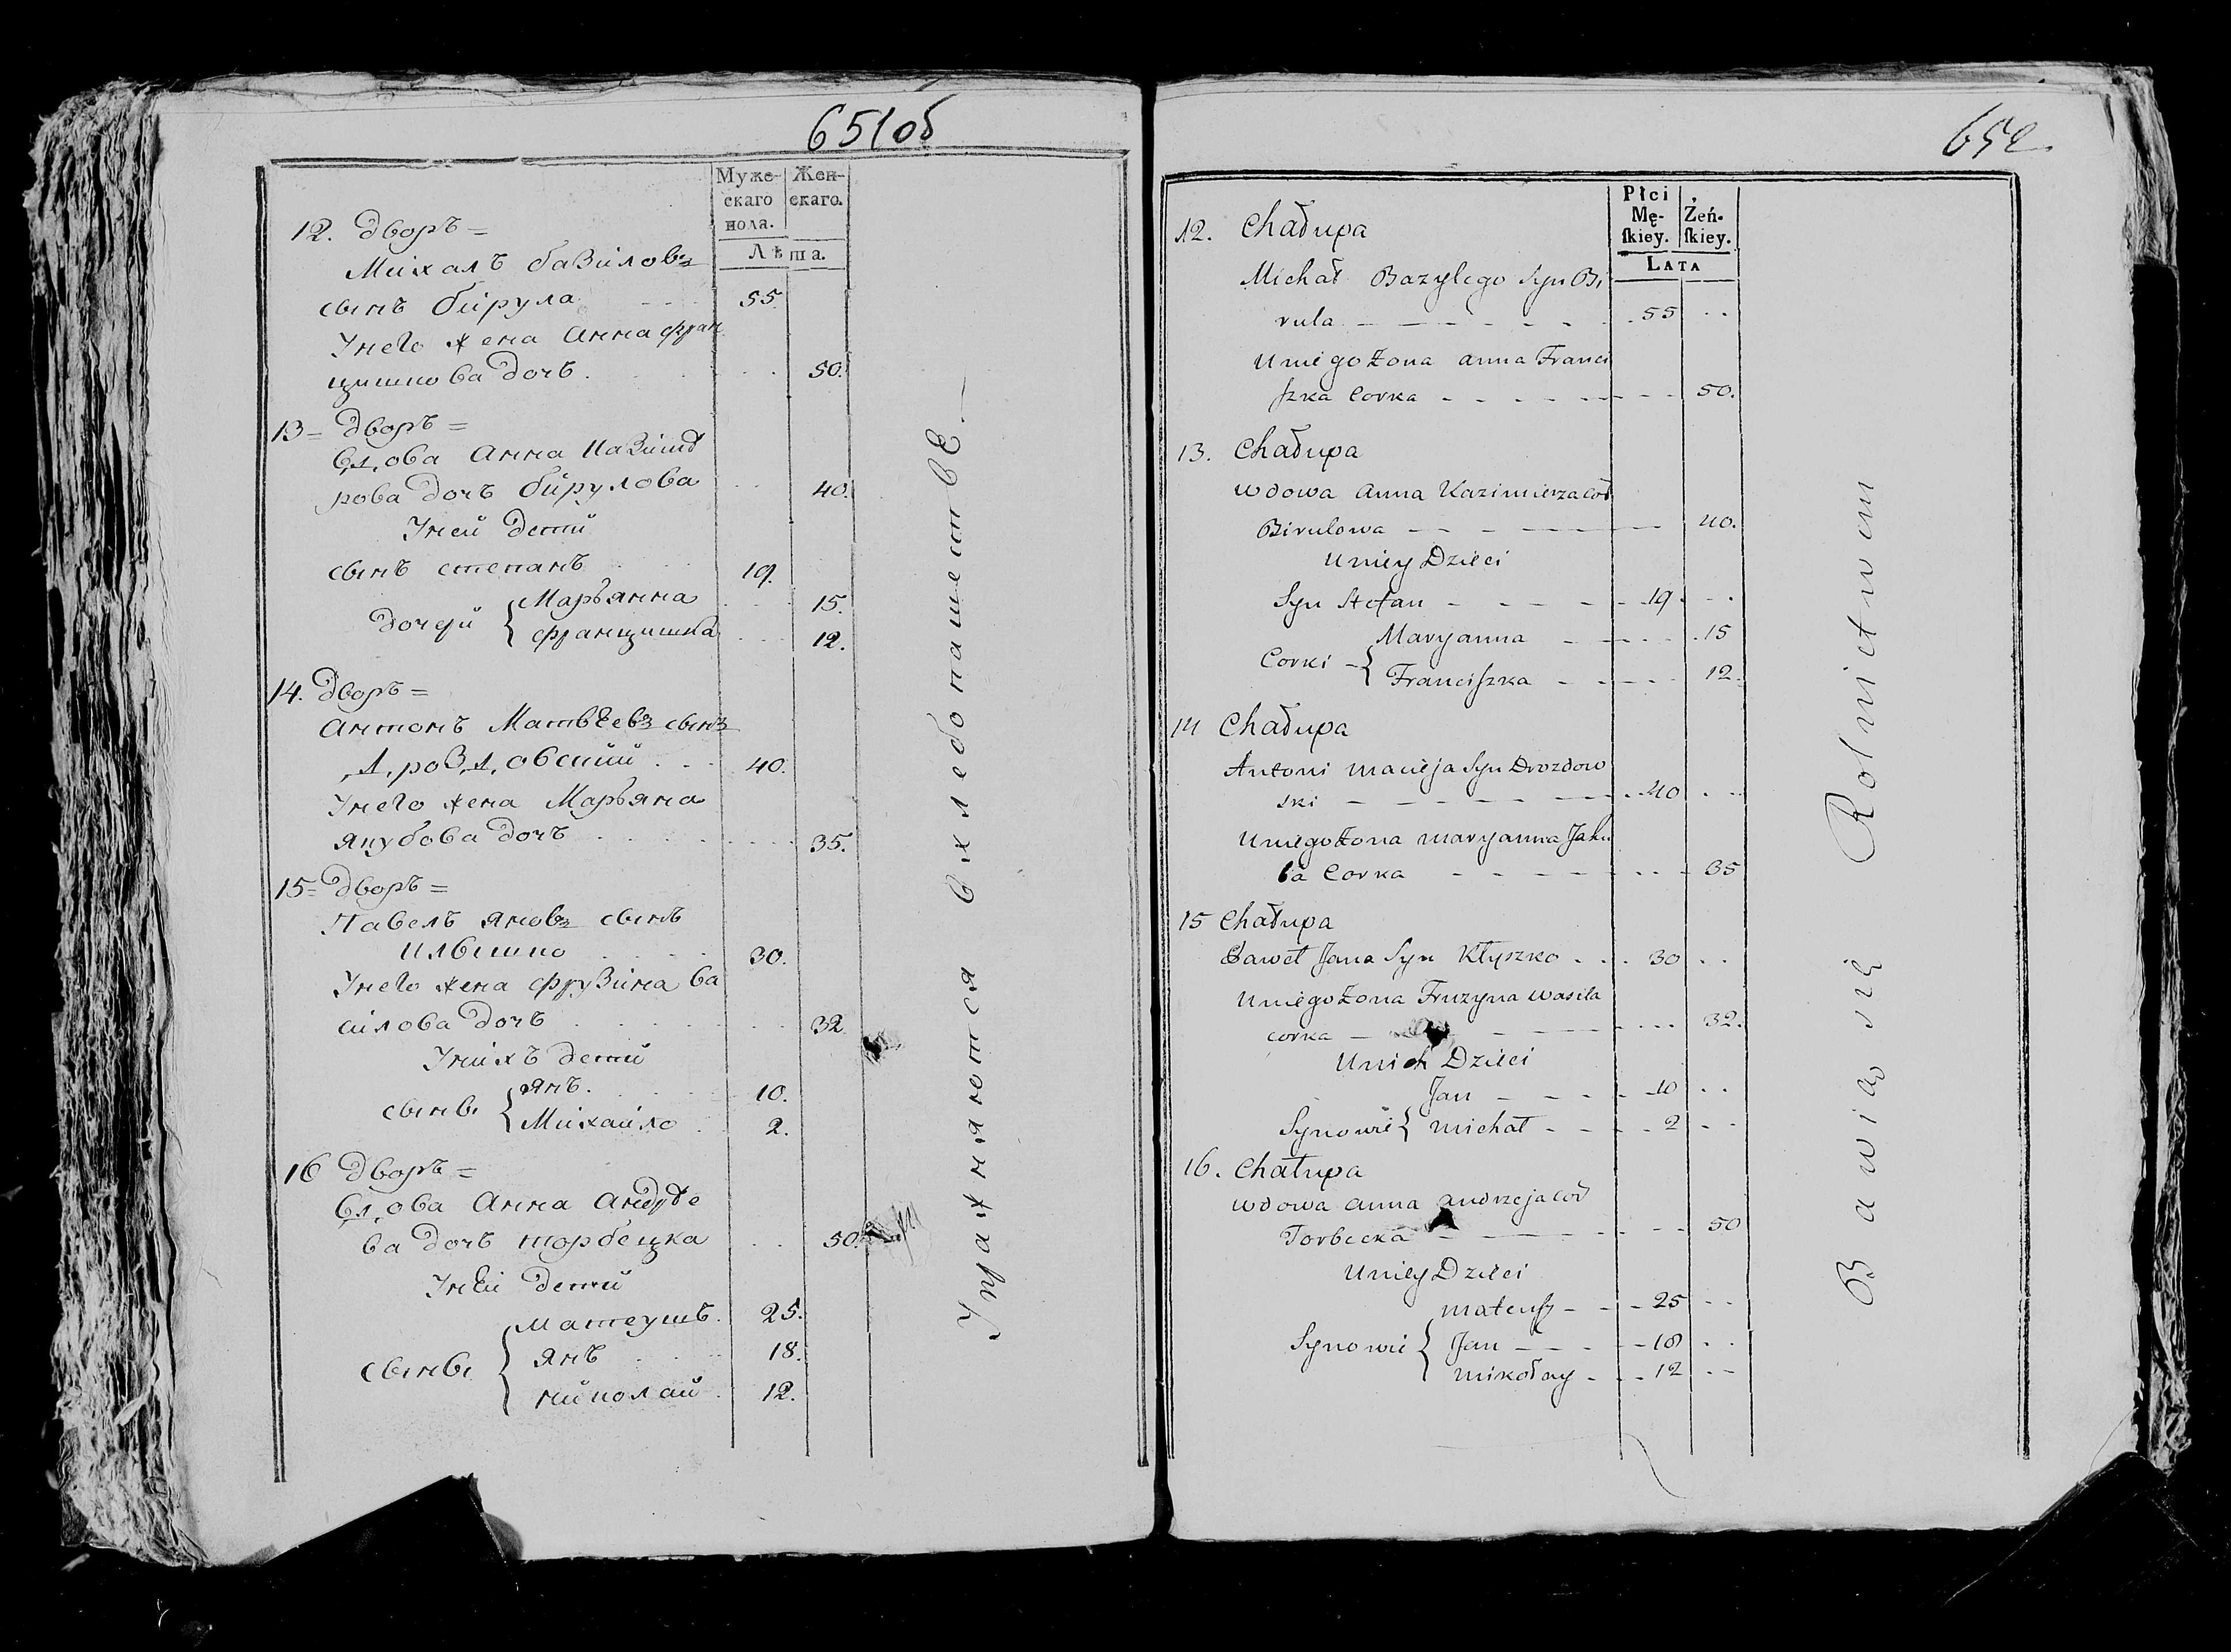 651об
Муже-
скаго
пола.
Жен-
скаго.
Лѣта.
12. Дворъ =
Михалъ базиловъ
сынъ бирула 55
Унего жена Анна фран
цишкова дочъ 50.
13 = Дворъ =
вдова Анна Казимѣ
рова дочъ бирулова 40.
Уней дети
сынъ степанъ 19.
дочери { Марьянна 15.
францишка 12.
14. Дворъ =
Антонъ Матвѣевъ сынъ
дроздовский 40.
Унего жена Марьяна
Якубова дочъ 35.
15 = Дворъ =
Павелъ Яновъ сынъ
Клышко 30.
Унего жена фрузина ва
силова дочъ 32
Унихъ дети
сынвы { Янъ. 10.
Михайло 2.
16 Дворъ =
вдова Анна Андрѣе
ва дочъ торбецка 50.
Уней дети
сынвы { Матеушъ. 25.
Янъ 18.
николай 12.
Упражняются в хлебопашествѣ. —
652
Płci
Mę-
ſkiey.
Żeń-
ſkiey.
LATA
12. Chałupa
Michał Bazylego Syn Bi
rula 55
Uniego Żona anna Franci
szka Corka 50.
13. Chałupa
Wdowa Anna Kazimierza Cor
Birulowa 40.
Uniey Dzieci
Syn Stefan 19
Corki { Maryanna 15
Franciszka 12.
14 Chałupa
Antoni Macieja Syn Drozdow
ski 40
Uniego Żona Maryanna Jaku
ba Corka 35
15 Chałupa
Paweł Jana Syn Kłyszko 30
Uniego Żona Fruzyna Wasila
corka 32.
Unich Dzieci
Jan 10
Synowie { Michał 2
16. Chałupa
Wdowa Anna Andrzeja Cor
Torbecka 50
Uniey Dzieci
Mateusz 25
Synowie { Jan 18
Mikołay 12
Bawią się Rolnictwem